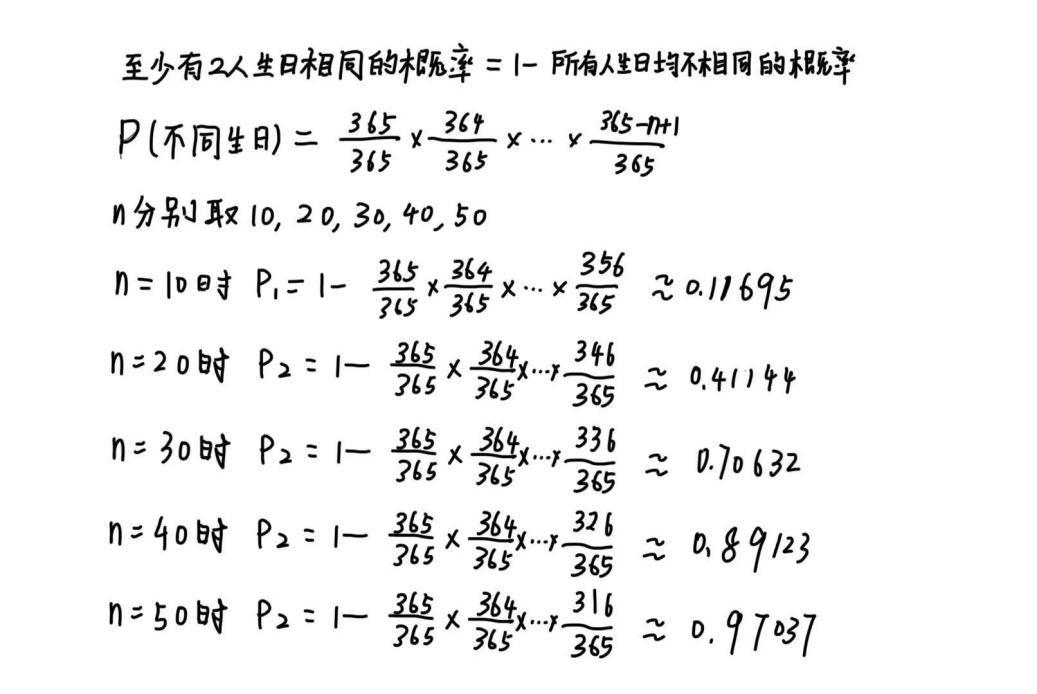 至少有2人生日相同的概率 = 1- 所有人生日均不相同的概率
P(不同生日) = 365/365 × 364/365 × ... × 365-n+1/365
n分别取 10, 20, 30, 40, 50
n = 10时 P₁ = 1 - 365/365 × 364/365 × ... × 356/365 ≈ 0.11695
n = 20时 P₂ = 1 - 365/365 × 364/365 × ... × 346/365 ≈ 0.41144
n = 30时 P₂ = 1 - 365/365 × 364/365 × ... × 336/365 ≈ 0.70632
n = 40时 P₂ = 1 - 365/365 × 364/365 × ... × 326/365 ≈ 0.89123
n = 50时 P₂ = 1 - 365/365 × 364/365 × ... × 316/365 ≈ 0.97037